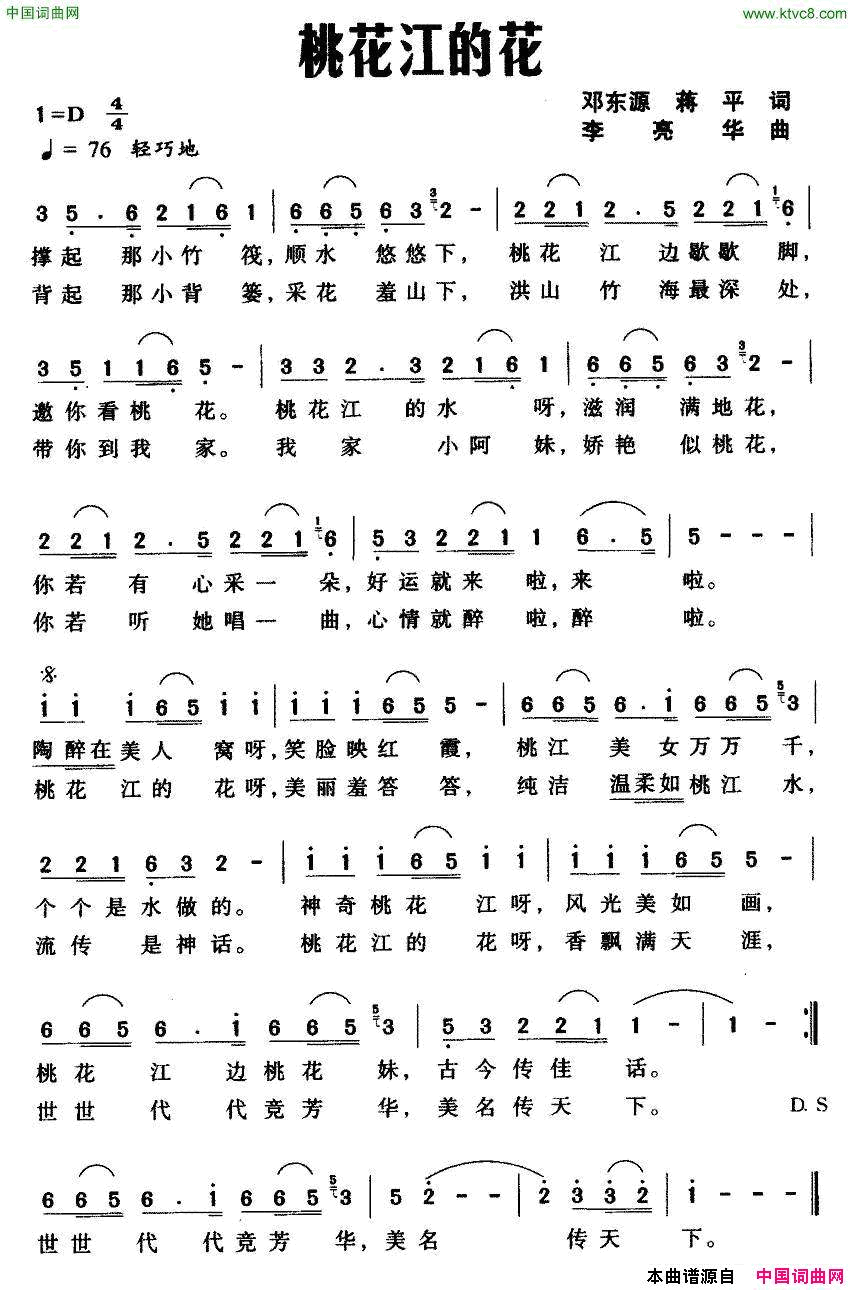 中国词曲网 www.ktvc8.com
桃花江的花
邓东源 蒋 平 词
1=D 4/4
李 亮 华 曲
♩= 76 轻巧地
3 5 . 6 2 1 6 1 | 6 6 5 6 3 3 2 - | 2 2 1 2 . 5 2 2 1 1 6 |
撑起 那小竹 筏,顺水 悠悠下, 桃花 江 边歇歇 脚,
背起 那小背 篓,采花 羞山下, 洪山 竹 海最深 处,
3 5 1 1 6 5 - | 3 3 2 . 3 2 1 6 1 | 6 6 5 6 3 3 2 - |
邀你看桃 花。 桃花江 的水 呀,滋润 满地花,
带你到我 家。 我 家 小阿 妹,娇艳 似桃花,
2 2 1 2 . 5 2 2 1 1 6 | 5 3 2 2 1 6 . 5 | 5 - - - |
你若 有 心采一 朵,好运就来 啦,来 啦。
你若 听 她唱一 曲,心情就醉 啦,醉 啦。
1 1 1 6 5 1 1 | 1 1 1 6 5 5 - | 6 6 5 6 . 1 6 6 5 5 3 |
陶醉在美人 窝呀,笑脸映红 霞, 桃江 美 女万万 千,
桃花 江的 花呀,美丽羞答 答, 纯洁 温柔如桃江 水,
2 2 1 6 3 2 - | 1 1 1 6 5 1 1 | 1 1 1 6 5 5 - |
个个是水做的。 神奇桃花 江呀,风光美如 画,
流传 是神话。 桃花江的 花呀,香飘满天 涯,
6 6 5 6 . 1 6 6 5 5 3 | 5 3 2 2 1 1 - | 1 - :|
桃花 江 边桃花 妹,古今传佳 话。
世世 代 代竞芳 华,美名传天 下。 D. S
6 6 5 6 . 1 6 6 5 5 3 | 5 2 - - | 2 3 3 2 1 - - |
世世 代 代竞芳 华,美名 传天 下。
本曲谱源自 中国词曲网